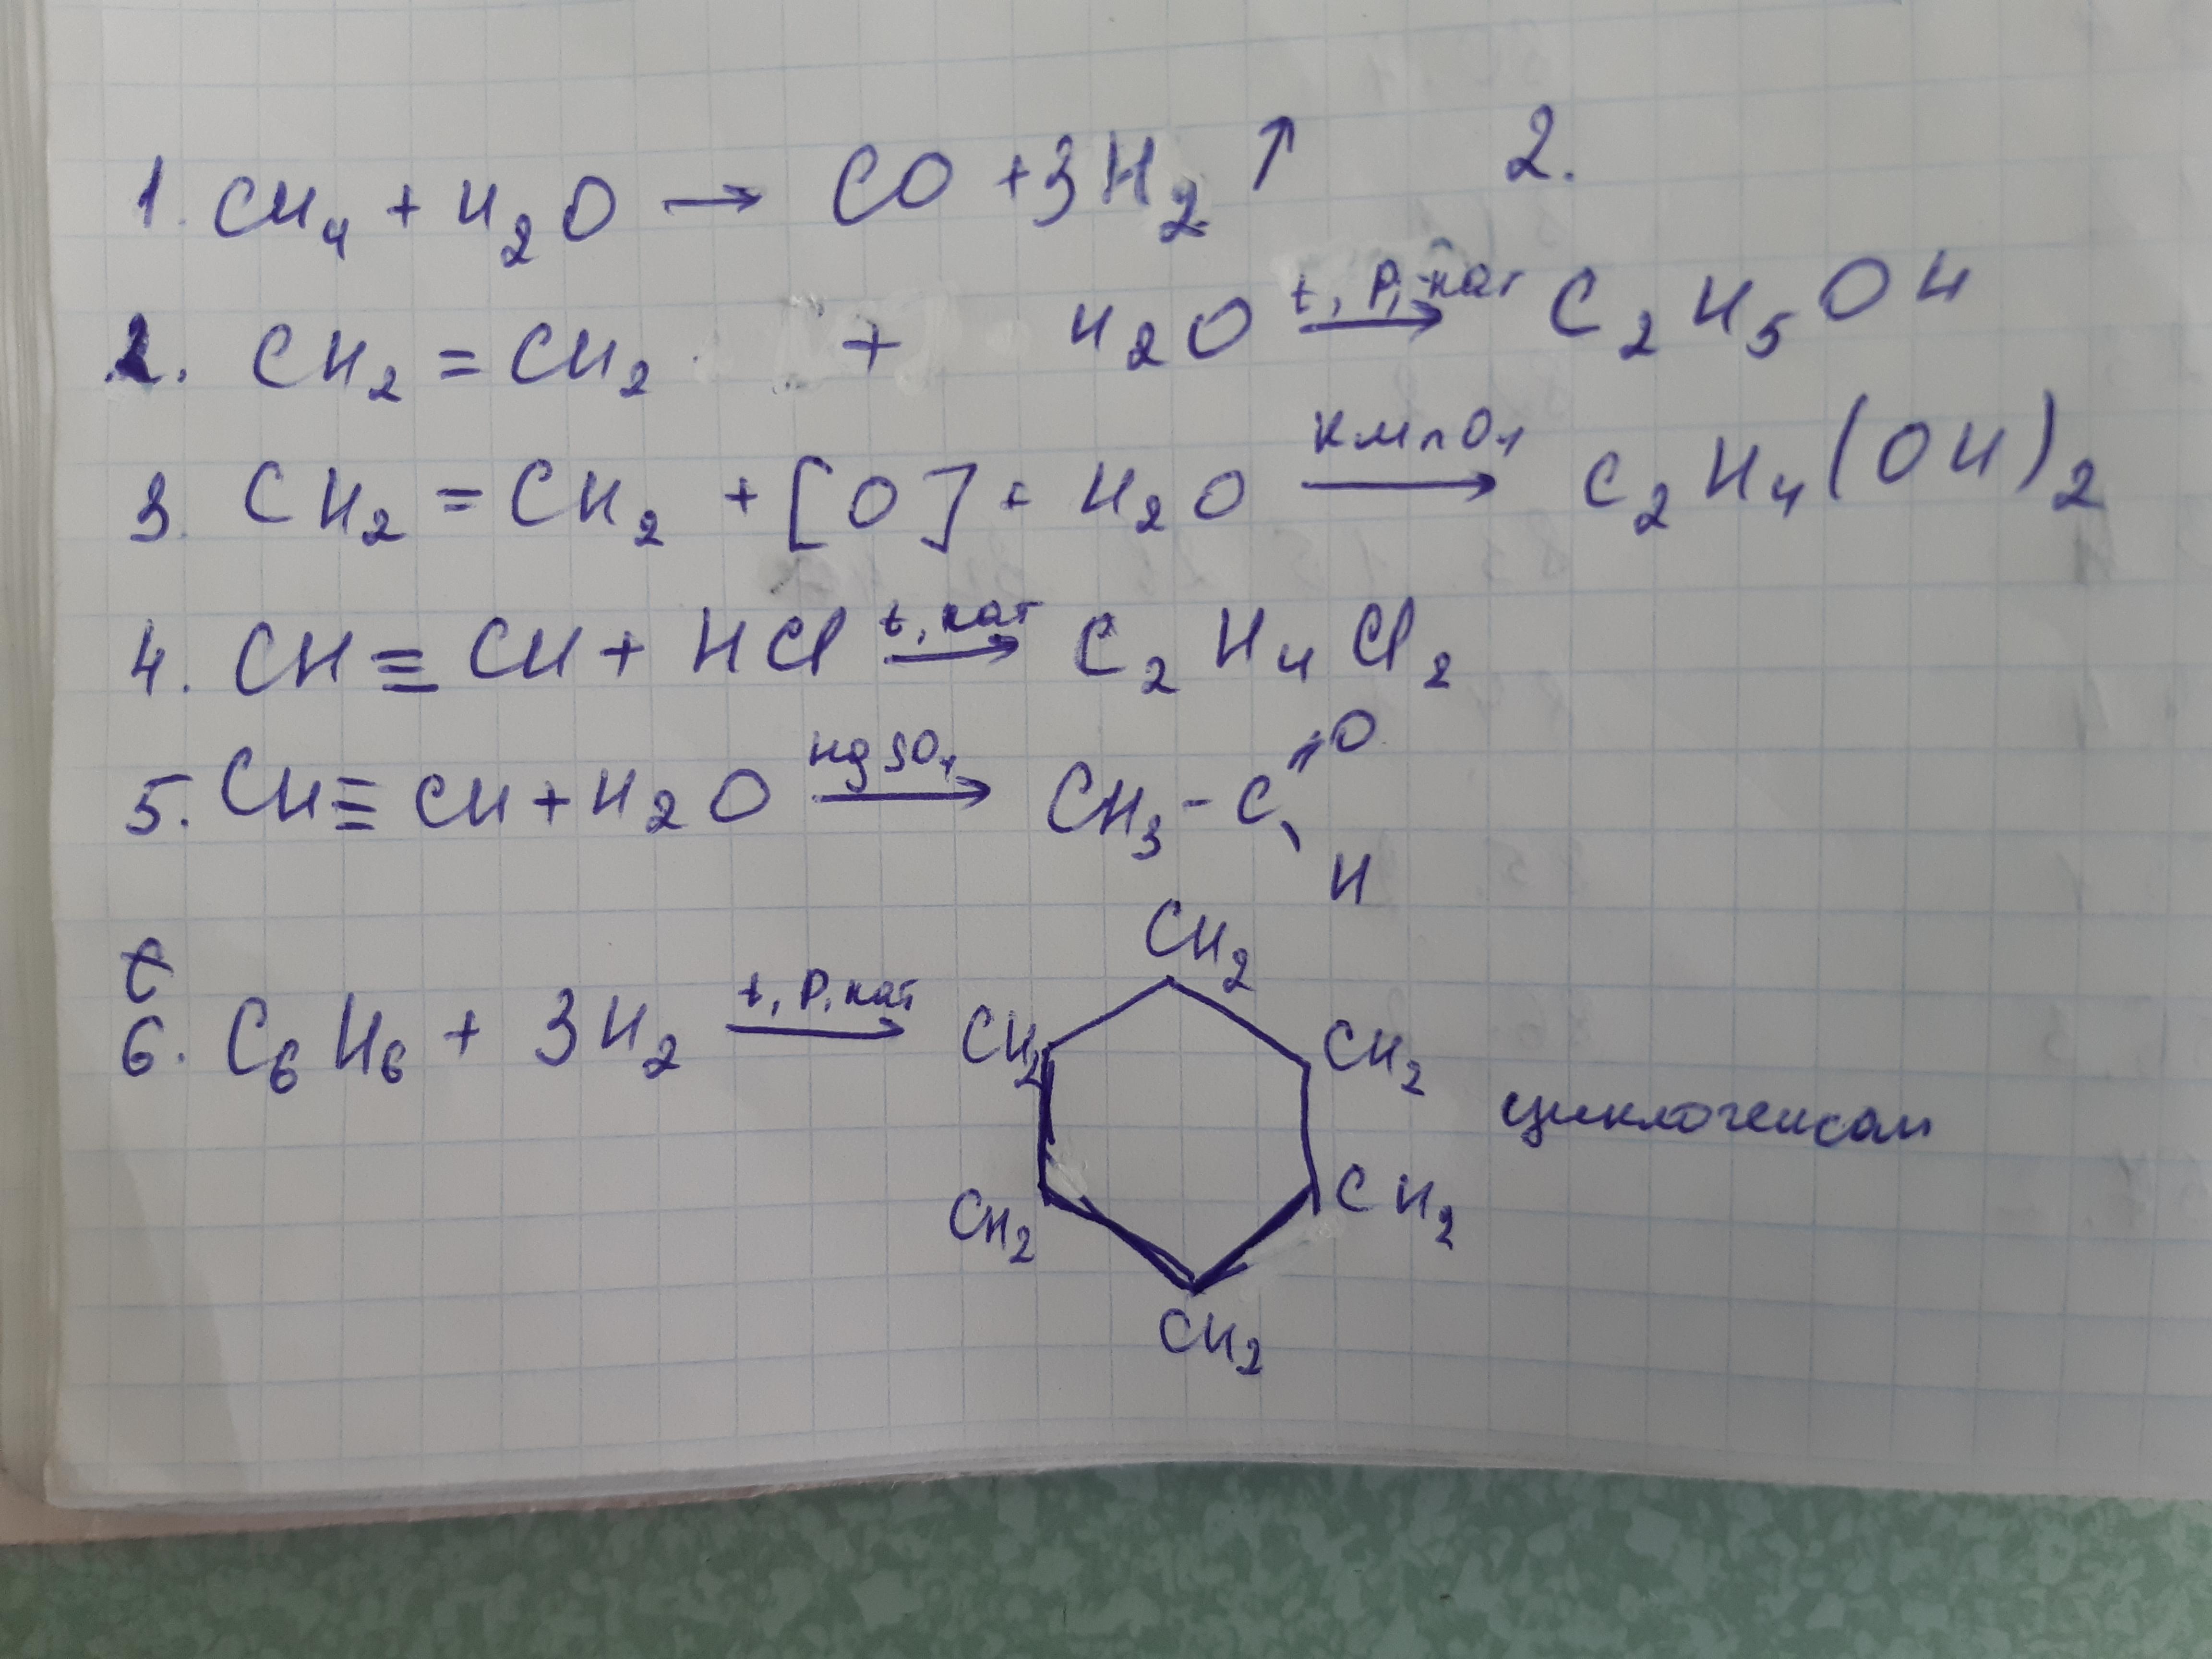 1. CH₄ + H₂O → CO + 3H₂ ↑ 2.
2. CH₂ = CH₂ + H₂O t, P, кат → C₂H₅OH
3. CH₂ = CH₂ + [O] + H₂O KMnO₄ → C₂H₄(OH)₂
4. CH ≡ CH + HCl t, кат → C₂H₄Cl₂
5. CH ≡ CH + H₂O HgSO₄ → CH₃ - C
O
H
6. C₆H₆ + 3H₂ t, P, кат →
CH₂
CH₂ CH₂
CH₂ CH₂
CH₂
циклогексан